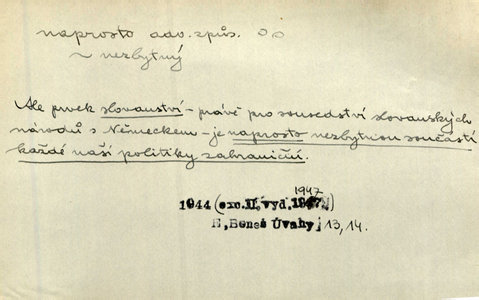 naprosto adv. způs. oo
~ nezbytný
Ale prvek slovanství – právě pro sousedství slovanských
národů s Německem – je naprosto nezbytnou součástí
každé naší politiky zahraniční.
1947
1944 (exc. II, vyd.
E, Beneš Úvahy j 13, 14.